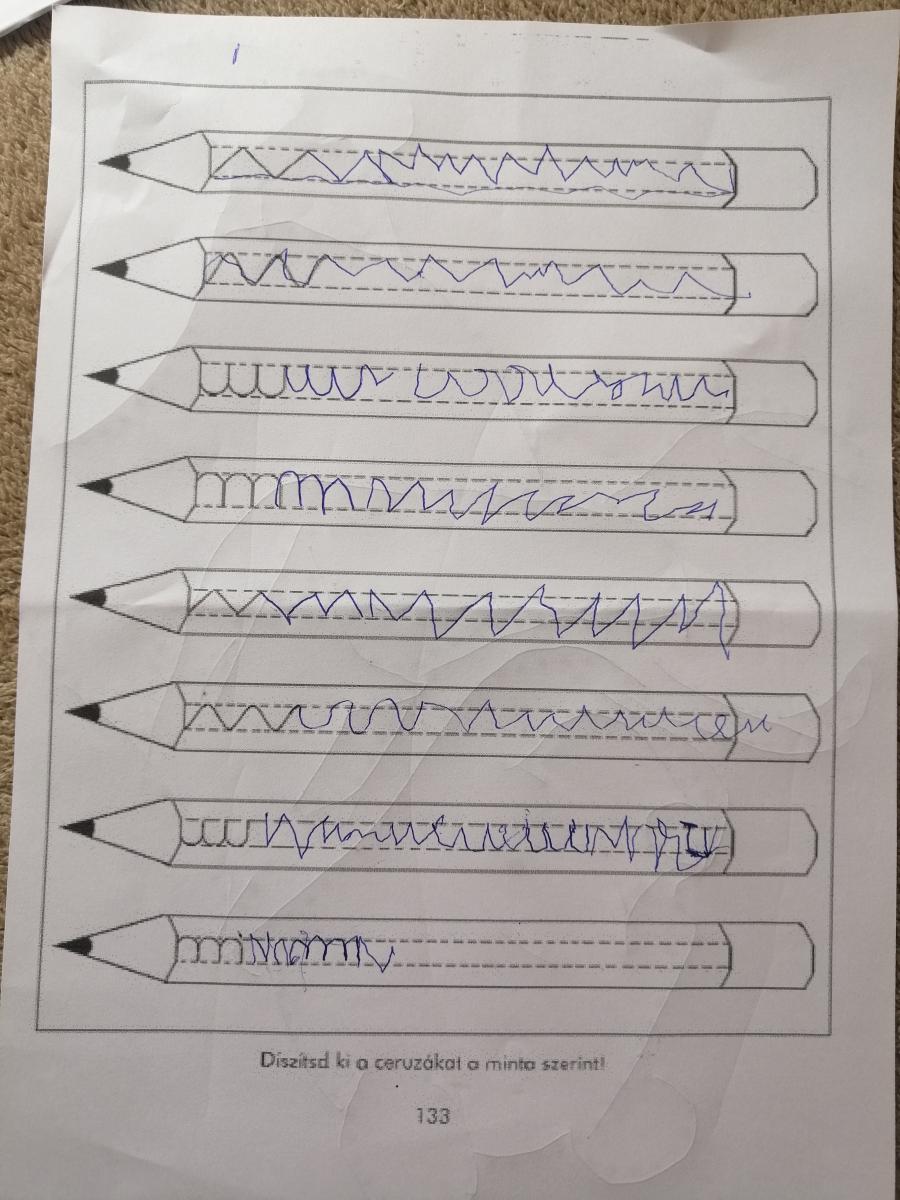 Díszítsd ki a ceruzákat a minta szerint!
133